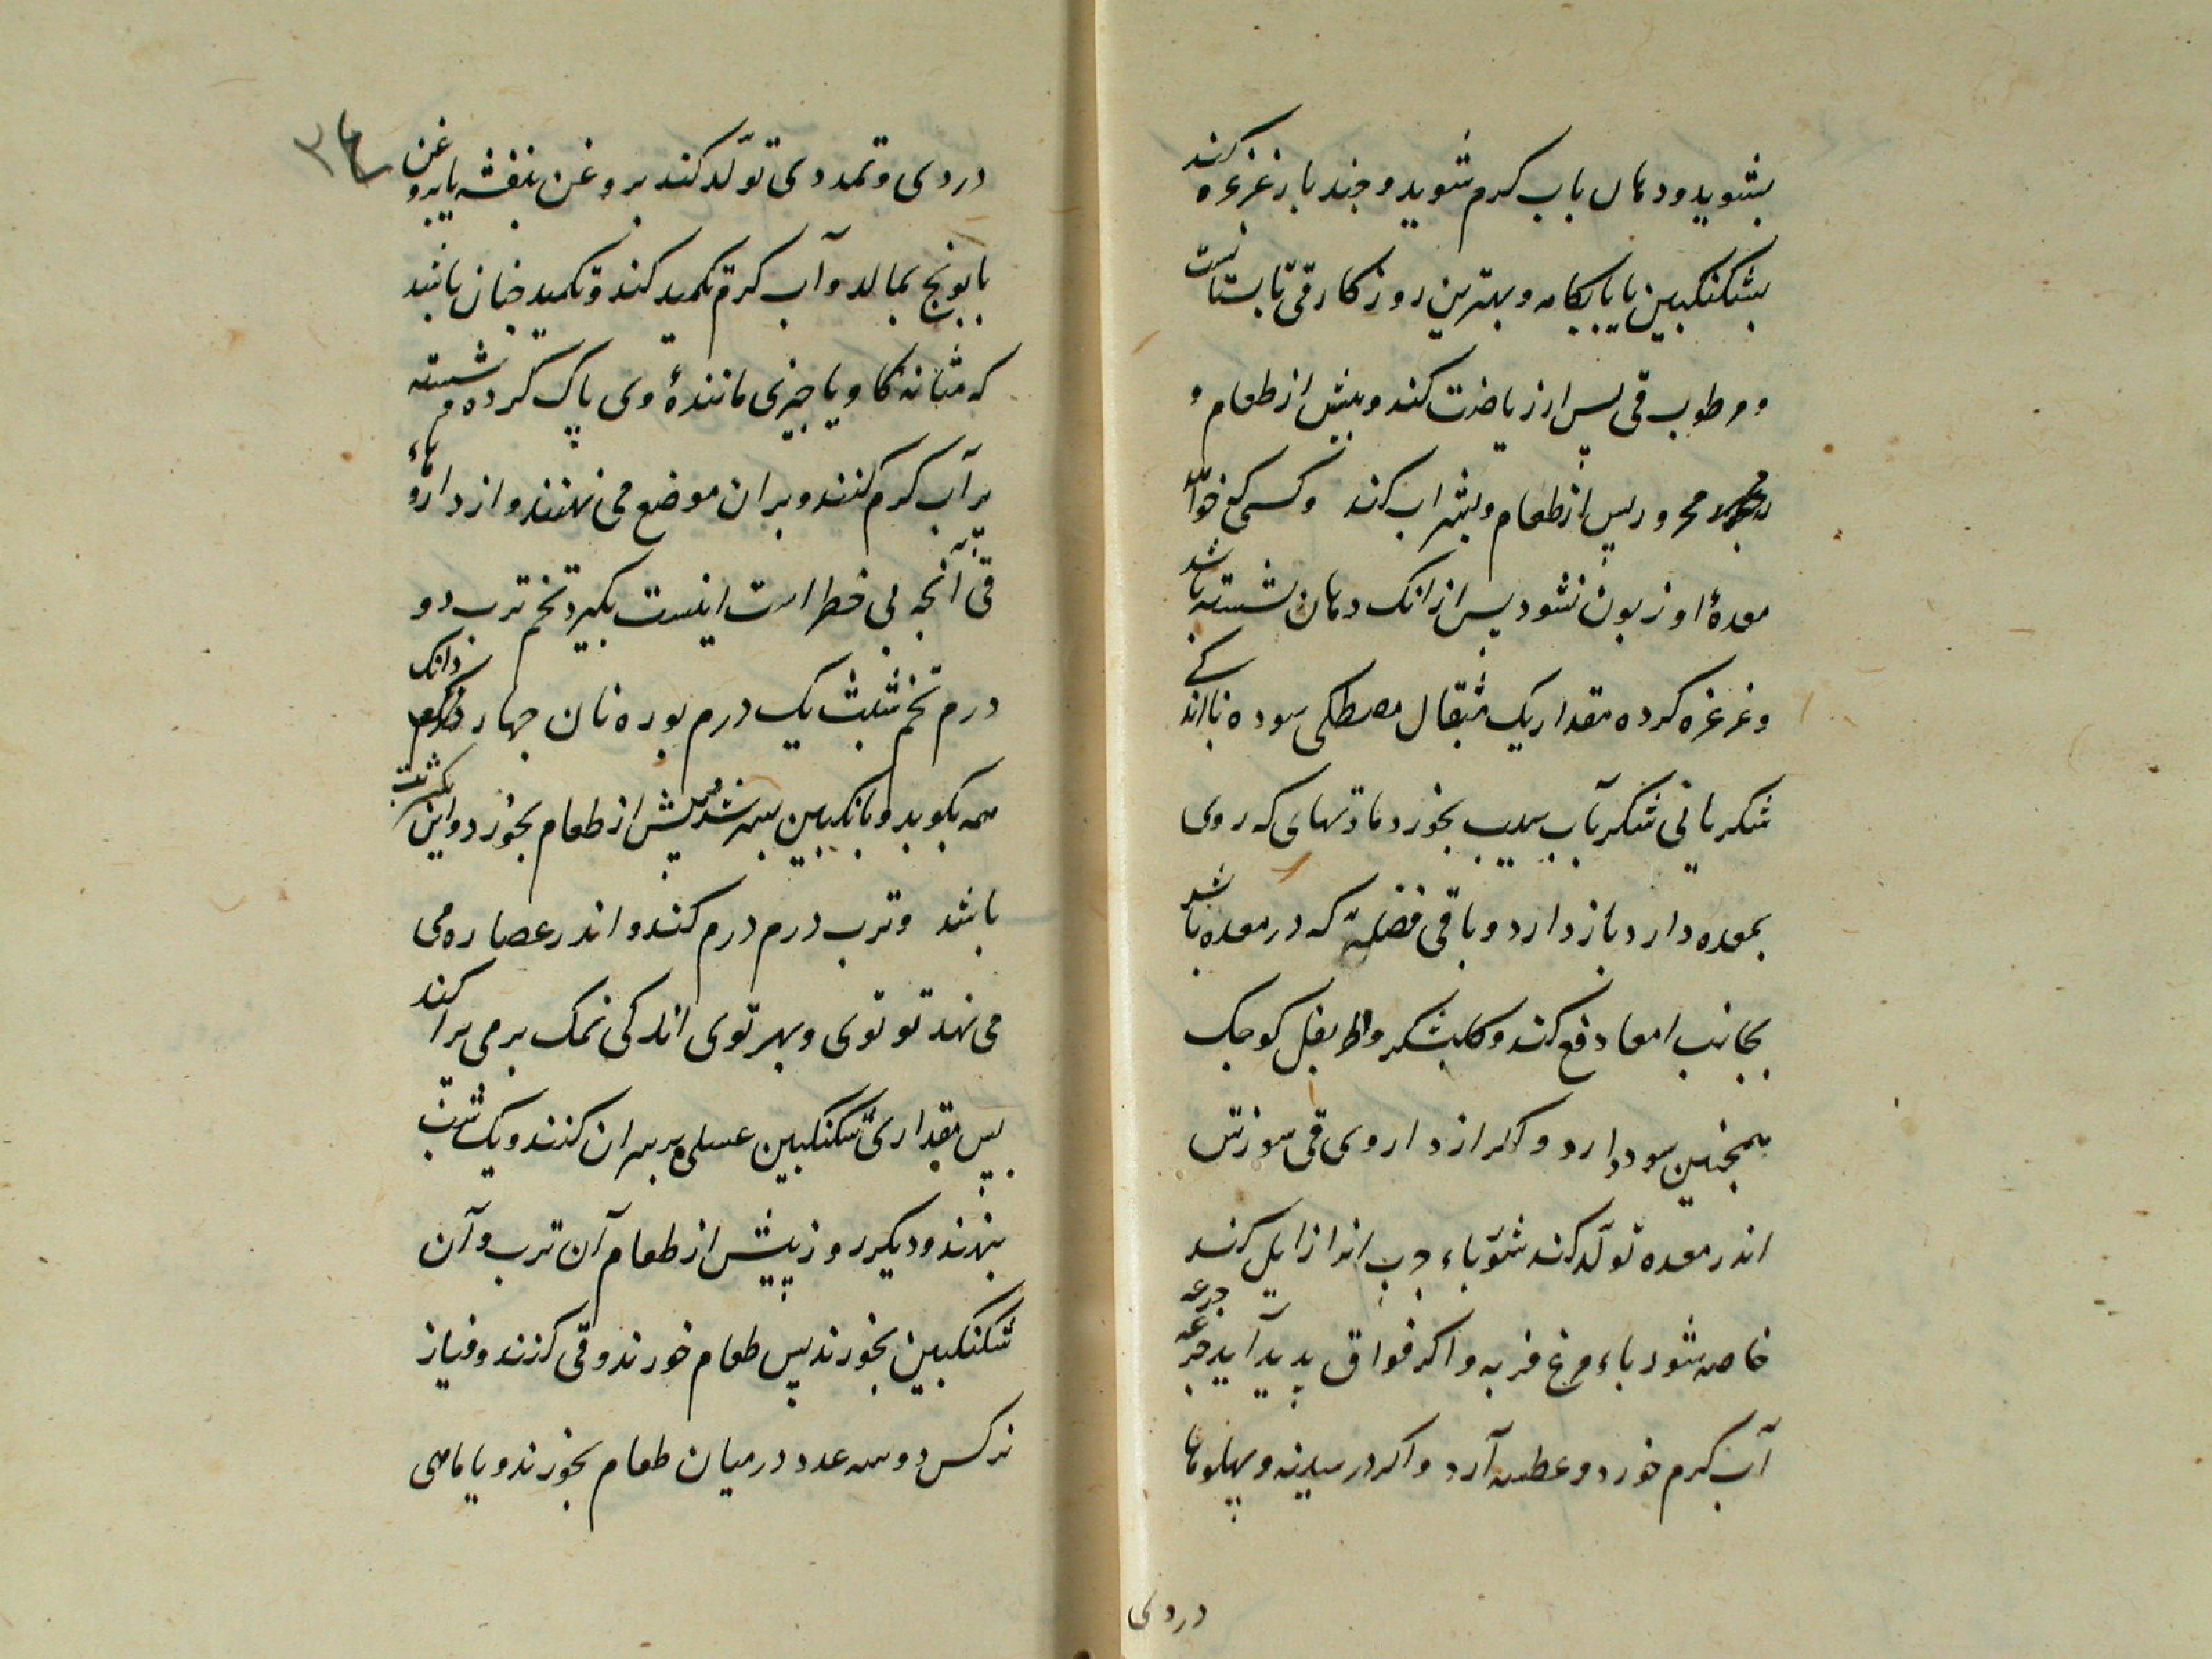 بشوید و دهان باب کرم شوید و چند بار غرغره کند
بشکنکبین یا بابکامه و بهترین روزکار قی تابستانست
و مرطوب قی پس از ریاضت کند و پیش از طعام و
محرور پس از طعام و شراب کند و کسی که خواهد
معدهٔ او زبون نشود پس از انک دهان شسته باشد
و غرغره کرده مقدار یک مثقال مصطکی سوده با اندکی
شکر یا بی شکر بآب سیب بخورد مادتهای که روی
بمعده دارد باز دارد و باقی فضلهٔ که در معده باشد
بجانب امعا دفع کند و کلبشکر و اطریفل کوچک
همچنین سود دارد و اکر از داروی قی سوزش
اندر معده تولّد کند شورباء چرب انرا زایل کند
خاصه شورباء مرغ فربه و اکر فواق پدید آید جرعه جرعه
آب کرم خورد و عطسه آرد و اکر در سینه و پهلوها
دردی
۳۶
دردی و تمددی تولّد کند بروغن بنفشه یا بروغن
بابونج بمالد و آب کرم تکمید کند و تکمید چنان باشد
که مثانه کاو یا چیزی مانندهٔ وی پاک کرده و شسته
پر آب کرم کنند و بران موضع می نهند و از داروهاء
قی آنچه بی خطر است اینست بکیرد تخم ترب دو
درم تخم شبث یک درم بوره نان چهار دانک
همه بکوبد و بانکبین بسرشد پیش از طعام بخورد و این یکشربت
باشد و ترب درم درم کند و اندر عصاره می
می نهد تو توی و بهر توی اندکی نمک برمی پراکند
پس مقداری سکنکبین عسلی بر سران کنند و یک شب
بنهند و دیکر روز پیش از طعام آن ترب و آن
سکنکبین بخورند پس طعام خورند و قی کنند و پیاز
نرکس دو سه عدد در میان طعام بخورند و یا ماهی